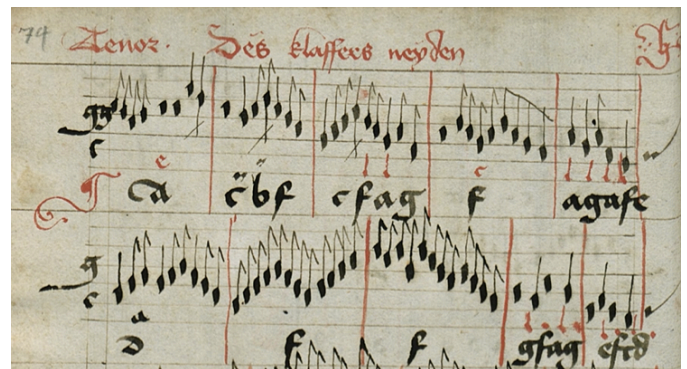 74 Tenor. Des klaffers neyden
gg
c
e
ca cbf cfag f agafe
g
c
a
D f f gfag efcd